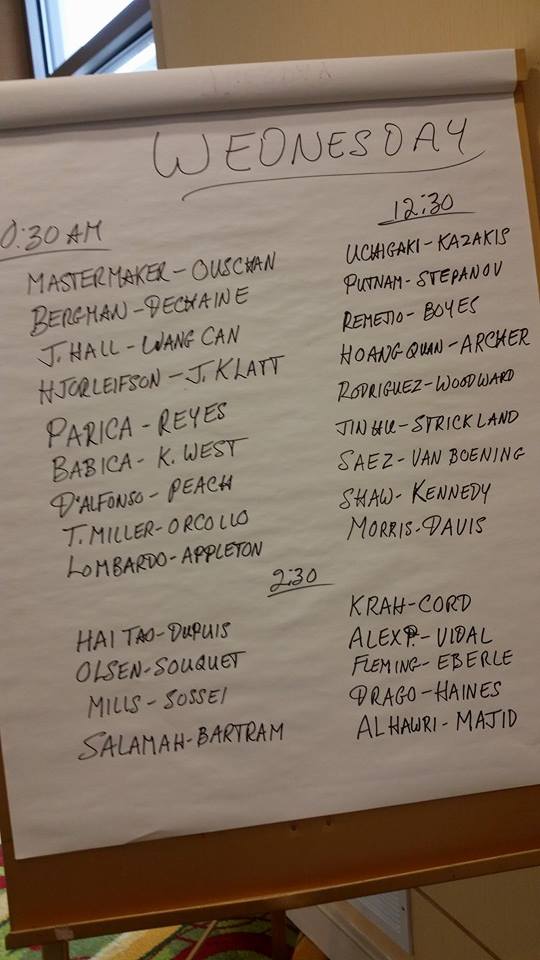 WEDNESDAY
0:30 AM
MASTERMAKER - OUSCHAN
BERGMAN - DECHAINE
J. HALL - WANG CAN
HJORLEIFSON - J. KLATT
PARICA - REYES
BABICA - K. WEST
D'ALFONSO - PEACH
T. MILLER - ORCOLLO
LOMBARDO - APPLETON
12:30
UCHIGAKI - KAZAKIS
PUTNAM - STEPANOV
REMEJIO - BOYES
HOANG QUAN - ARCHER
RODRIGUEZ - WOODWARD
JIN HU - STRICKLAND
SAEZ - VAN BOENING
SHAW - KENNEDY
MORRIS - DAVIS
2:30
HAI TAO - DUPUIS
OLSEN - SOUQUET
MILLS - SOSSEI
SALAMAH - BARTRAM
KRAH - CORD
ALEX P. - VIDAL
FLEMING - EBERLE
DRAGO - HAINES
ALHAWRI - MAJID